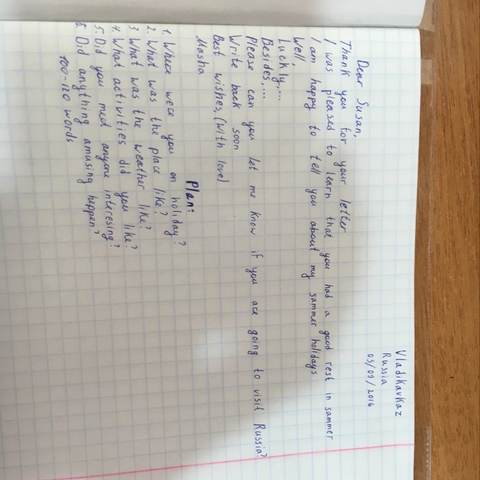 Vladikavkaz
Russia
05/09/2016
Dear Susan,
Thank you for your letter
I was pleased to learn that you had a good rest in sammer
I am happy to tell you about my sammer holidays
Well,
Luckily,...
Besides,...
Please can you let me know if you are going to visit Russia?
Write back soon
Best wishes, (with love)
Masha
Plan:
1. Where were you on holiday?
2. What was the place like?
3 What was the weather like?
4. What activities did you like?
5. Did you med anyone interesing?
6. Did anything amusing happen?
100-120 words